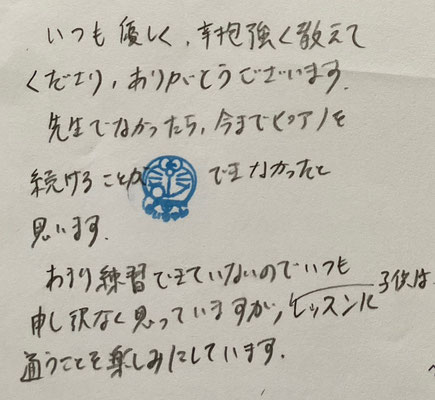 いつも優しく、辛抱強く教えて
くださり、ありがとうございます。
先生でなかったら、今までピアノを
続けることができなかったと
思います。
あまり練習できていないのでいつも
申し訳なく思っていますが、子供はレッスンに
通うことを楽しみにしています。